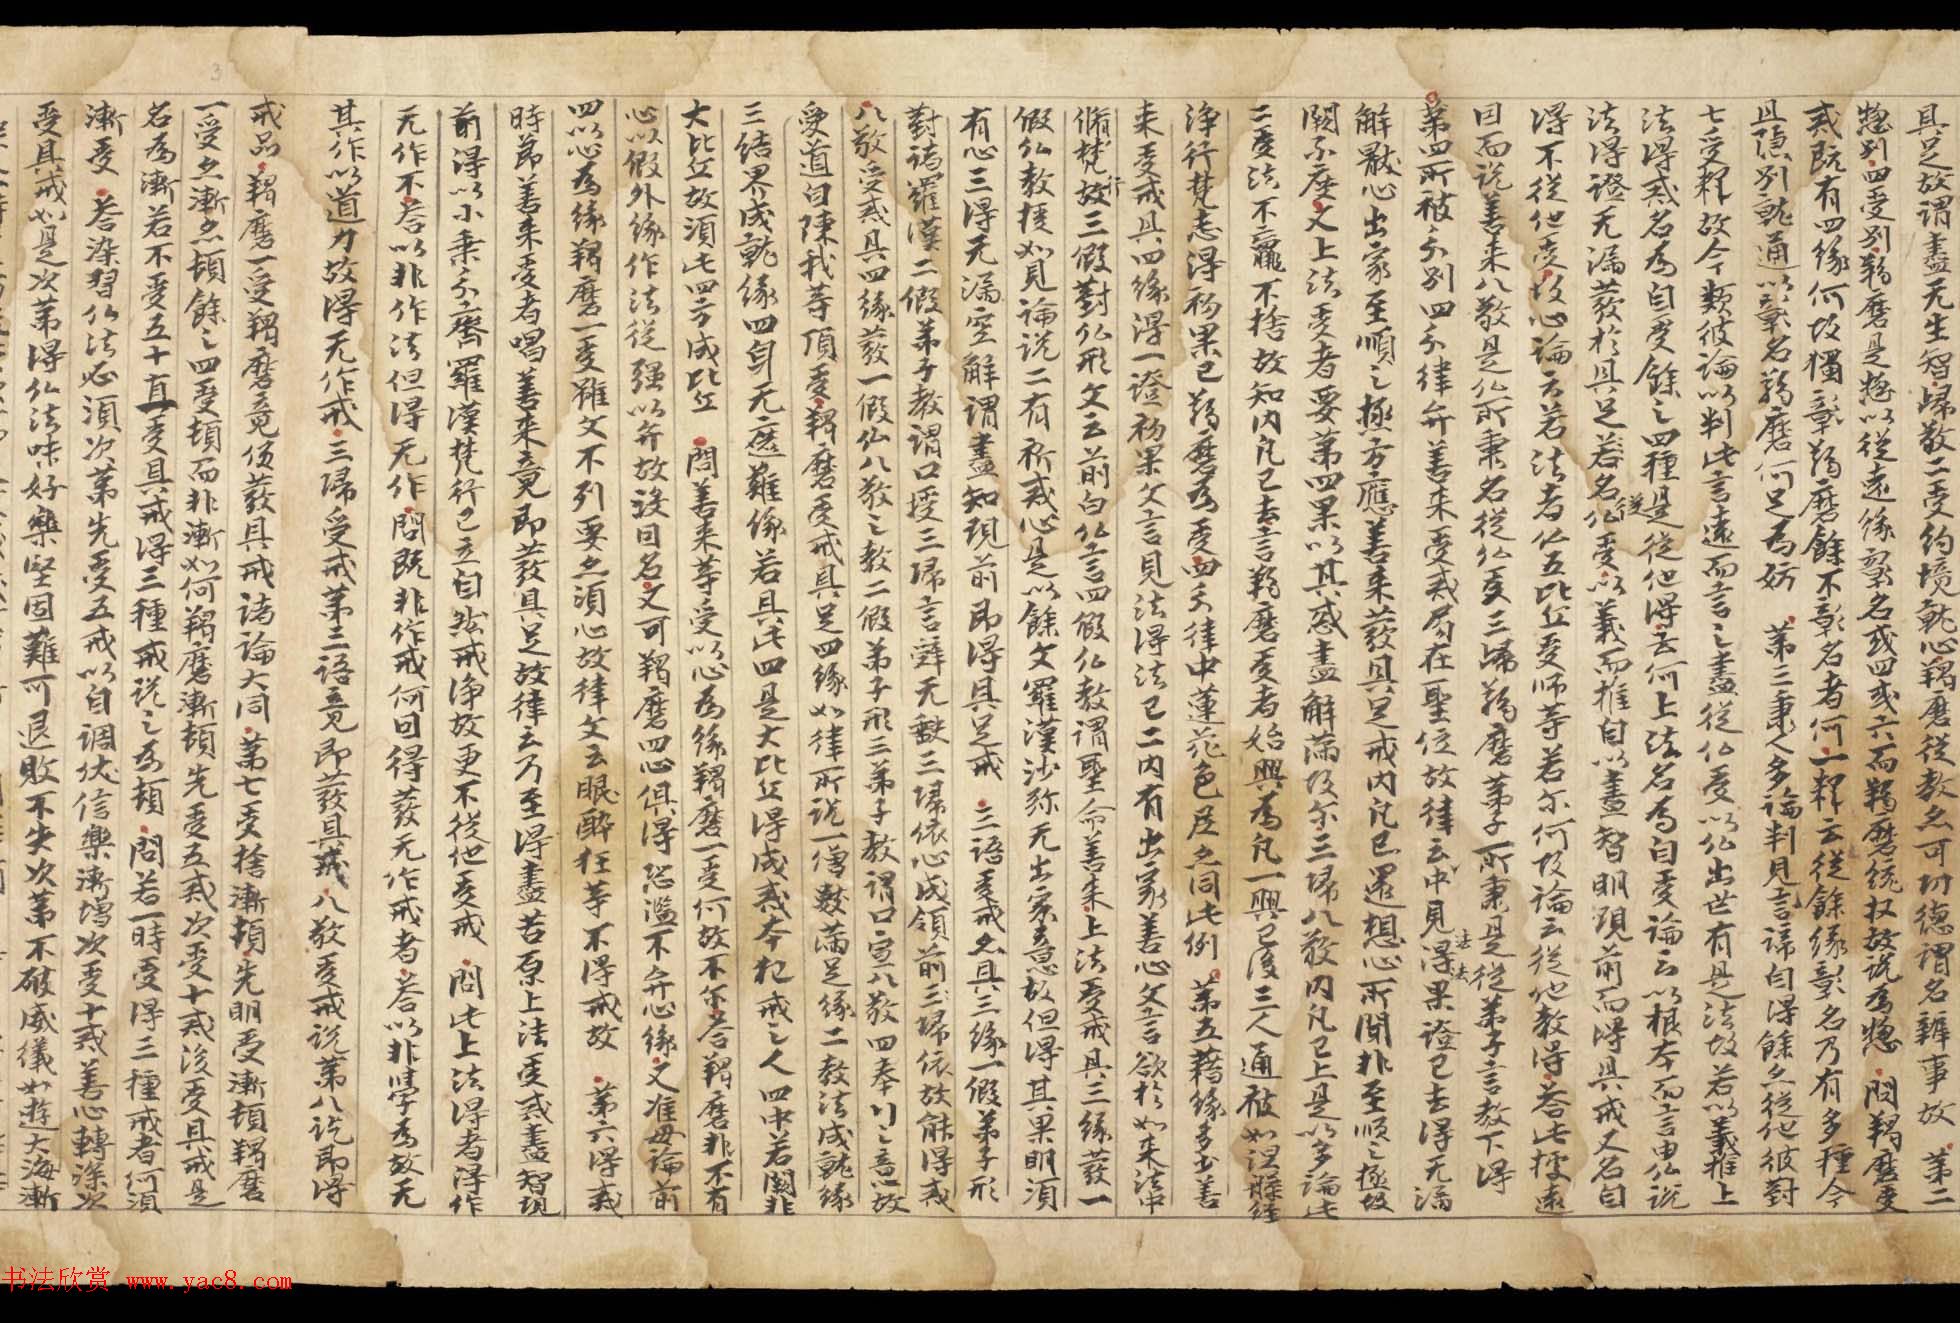 具足故謂盡无生智歸敬二受約境就心羯磨從教亦可功德謂名辦事故 第二
惣別四受別羯磨是惣以從遠緣瑿名或四或六而羯磨統收故說為惣 問羯磨受
戒既有四緣何故獨彰羯磨餘不彰名者何 一釋云從餘緣彰名乃有多種今
且隱別就通以彰名羯磨何足為妨 第三秉人多論判見諦自得餘亦從他彼對
七受釋故今類彼論以判此言遠而言之盡從仏受以仏出世有是法故若以義推上
法得戒名為自受餘之四種是從他得 云何上法名為自受論云以根本而言由仏說
法得證无漏發於具足若名從仏受以義而推自以盡智明現前而得具戒又名自
得不從他受故心論云若法者仏五比丘受師等若尔何故論云從他教得答此據遠
因而說善來八敬是仏所秉名從仏受三歸羯磨弟子所秉是從弟子言教下得
第四所被不別四分律弁善來受戒局在聖位故律云中見法得法果證已去得无漏
解散心出家至順之極方應善來發具足戒內凡已還想心所聞非至順之極故
闕不座文上法受者要第四果以其惑盡解滿故尔三歸八敬內凡已上是以多論此
二受法不麤不捨故知內凡已去言羯磨受者始興為凡一興已後三人通被如涅槃經
淨行梵志得初果已羯磨為受四分律中蓮花色尼亦同此例 第五藉緣多少善
來受戒具四緣得一證初果文言見法得法已二內有出家善心文言欲於如來法中
脩梵行故三假對仏形文云前白仏言四假仏教謂聖命善來上法受戒具三緣發一
假仏教授如見論說二有祈戒心是以餘文羅漢沙弥无出家意故但得其果明須
有心三得无漏空解謂盡知現前即得具足戒 三語受戒亦具三緣一假弟子形
對諸羅漢二假弟子教謂口授三歸言辭无缺三歸依心成領前三歸依故能得戒
八敬受戒具四緣發一假仏八敬之教二假弟子形三弟子教謂口宣八敬四奉行之意故
受道白陳我等頂受羯磨受戒具足四緣如律所說一僧數滿足緣二教法成就緣
三結界成就緣四身无遮難緣若具此四是大比丘得成戒本犯戒之人四中若闕非
大比丘故須此四方成比丘 問善來等受以心為緣羯磨一受何故不尔答羯磨非不有
心以假外緣作法從强以弁故沒因名又可羯磨四心俱得恐濫不弁心緣又准母論前
四以心為緣羯磨一受雖文不列要亦須心故律文云眠酔狂等不得戒故 第六得戒
時節善來受者唱善來竟即發具足故律云乃至得盡苦原上法受戒盡智現
前得以小乘不齊羅漢梵行已立自然戒淨故更不從他受戒 問此上法得者得作
无作不答以非作法但得无作 問既非作戒何因得發无作戒者答以非學為故无
其作以道力故得无作戒 三歸受戒第三語竟即發具戒八敬受戒說第八訖即得
戒品羯磨一受羯磨竟便發具戒諸論大同 第七受捨漸頓先明受漸頓羯磨
一受亦漸亦頓餘之四受頓而非漸如何羯磨漸頓先受五戒次受十戒後受具戒是
名為漸若不受五十直受具戒得三種戒說之為頓 問若一時受得三種戒者何須
漸受答染習仏法必須次第先受五戒以自調伏信樂漸增次受十戒善心轉深次
受具戒如是次第得仏法味好樂堅固難可退敗不失次第不破威儀如遊大海漸
書法欣赏 www.yac8.com